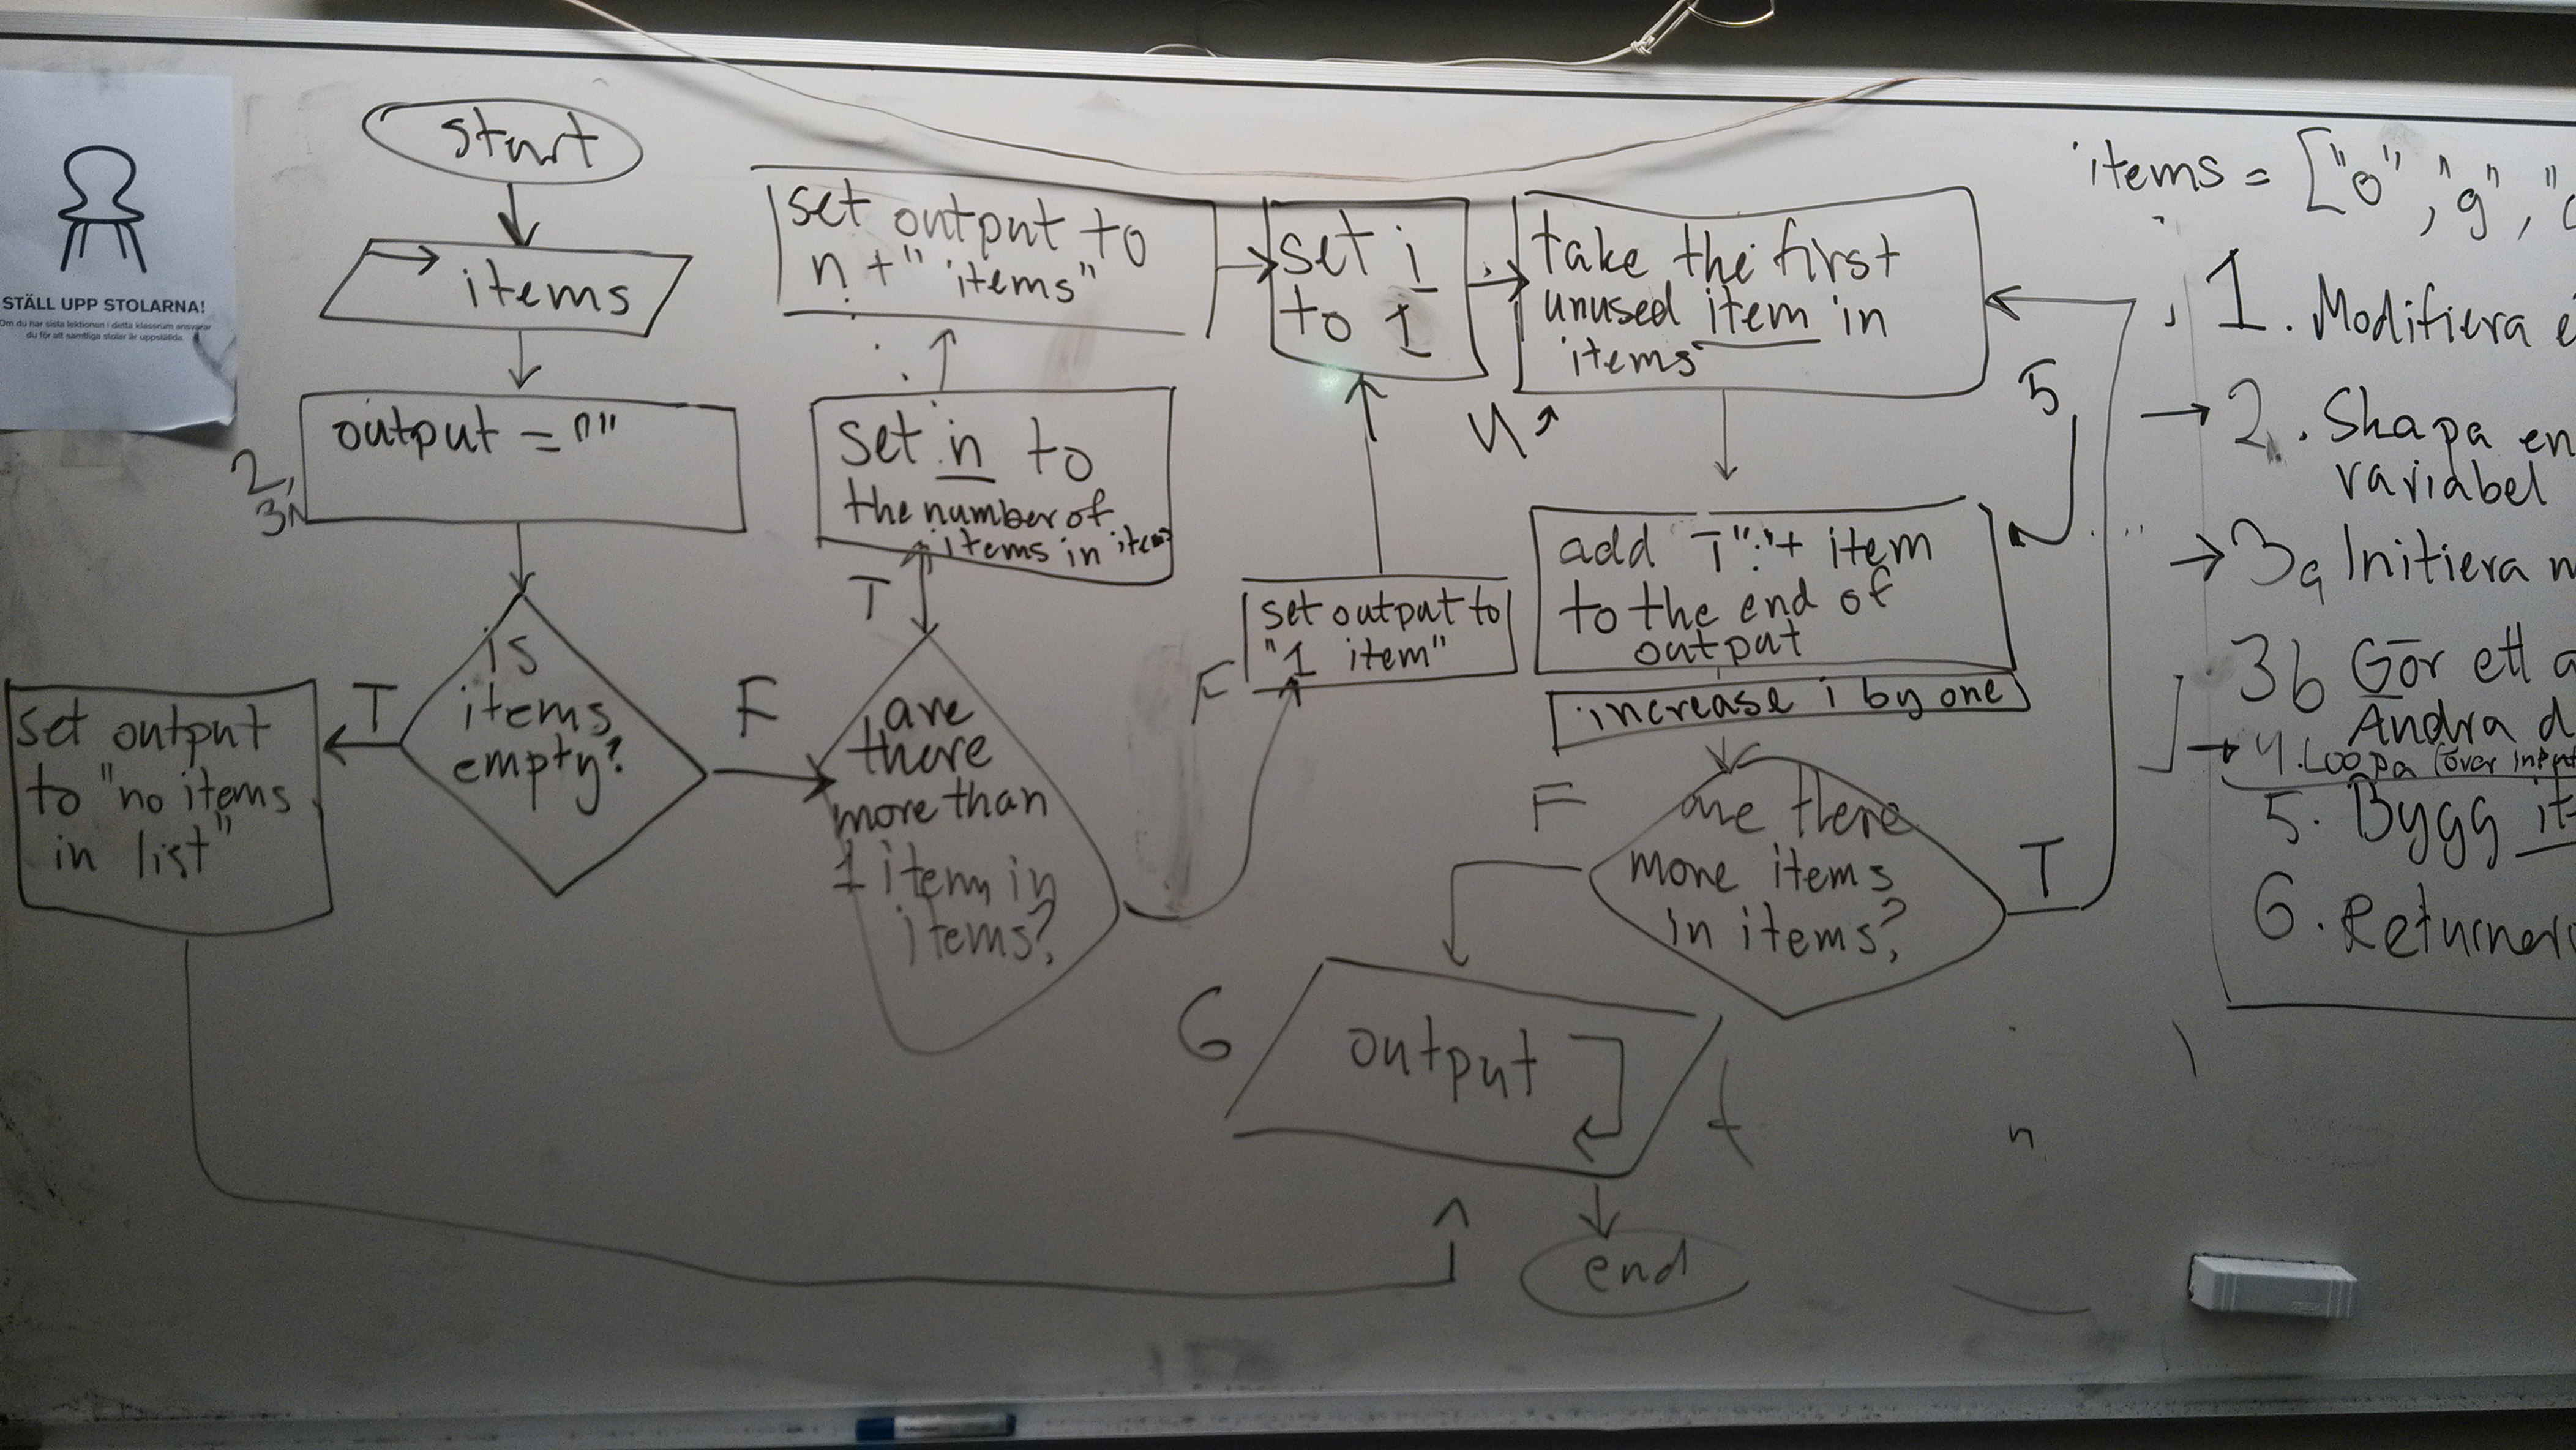 STÄLL UPP STOLARNA!
Om du har sista lektionen i detta klassrum ansvarar
du för att samtliga stolar är uppställda.
start
items
output = ""
2,
3a
is
items
empty?
T
F
set output
to "no items
in list"
set output to
n + " items"
set n to
the number of
items in items
T
are
there
more than
1 item in
items?
F
set output to
"1 item"
set i
to 1
take the first
unused item in
items
4
5
add i":"+ item
to the end of
output
increase i by one
are there
more items
in items?
F
T
6
output
end
items = ["o", "g", "
1. Modifiera
2. Skapa en
variabel
3a Initiera
3b Gör ett
Ändra
4. Loopa (över input
5. Bygg
6. Returnera